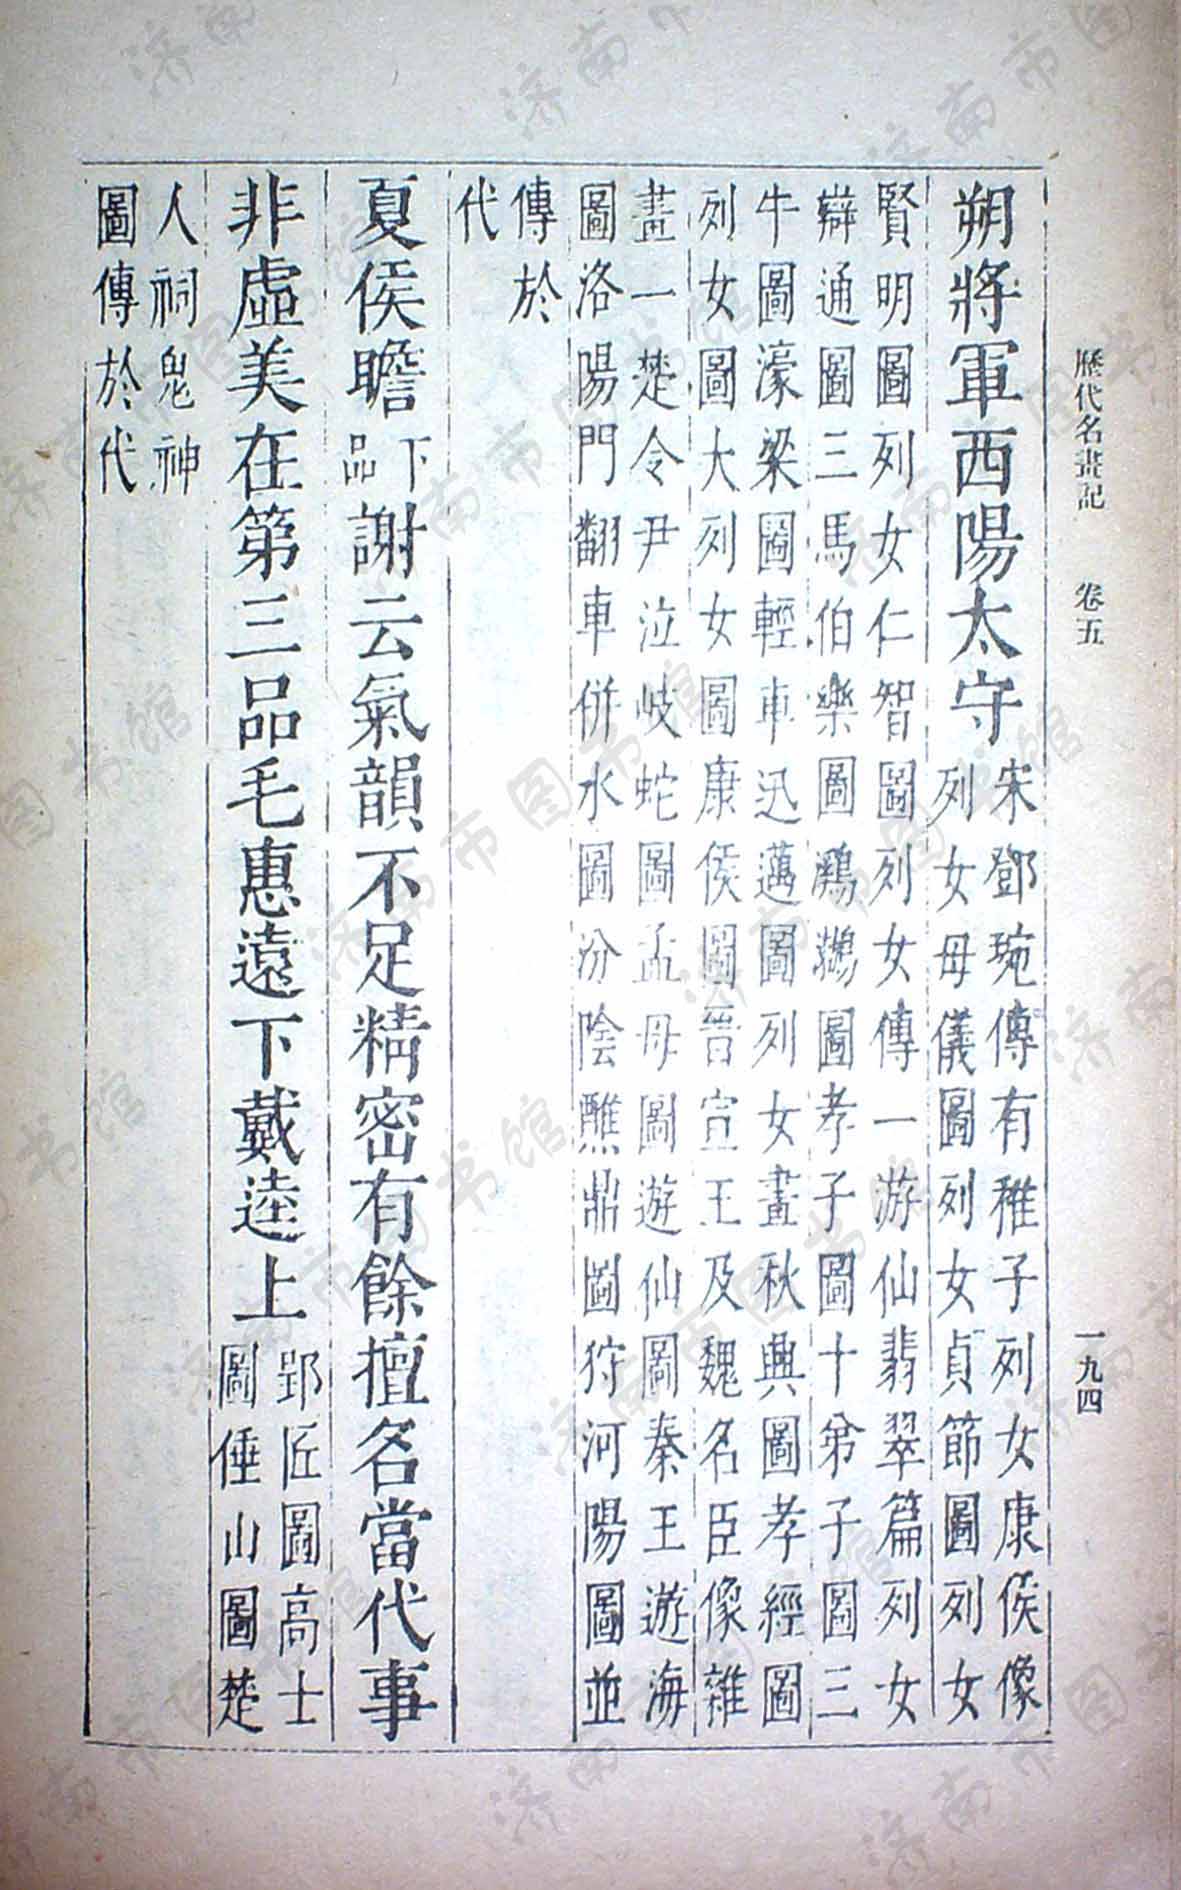 歷代名畫記 卷五 一九四
朔將軍西陽太守
宋鄧琬傳有稚子列女康侯像
列女母儀圖列女貞節圖列女
賢明圖列女仁智圖列女傳一游仙翡翠篇列女
辯通圖三馬伯樂圖鸂鶒圖孝子圖十弟子圖三
牛圖濠梁圖輕車迅邁圖列女畫秋興圖孝經圖
列女圖大列女圖康侯圖晉宣王及魏名臣像雜
畫一楚令尹泣岐蛇圖孟母圖遊仙圖秦王遊海
圖洛陽門翻車併水圖汾陰醮鼎圖狩河陽圖並
傳於
代
夏侯瞻下品謝云氣韻不足精密有餘擅名當代事
非虛美在第三品毛惠遠下戴逵上
郢匠圖高士
圖倕山圖楚
人祠鬼神
圖傳於代
济南市图书馆